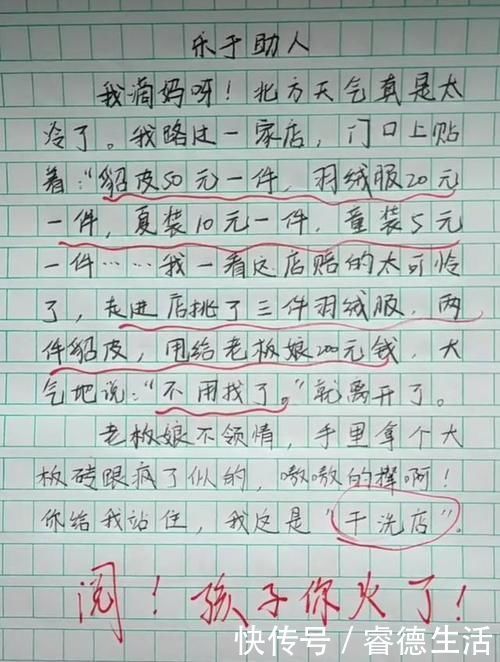 乐于助人
我滴妈呀！北方天气真是太
冷了。我路过一家店，门口上贴
着：“貂皮50元一件，羽绒服20元
一件，夏装10元一件，童装5元
一件……我一看这店赔的太可怜
了，走进店挑了三件羽绒服，两
件貂皮，甩给老板娘200元钱，大
气地说：“不用找了。”就离开了。
老板娘不领情，手里拿个大
板砖跟疯了似的，嗷嗷的撵啊！
你给我站住，我这是“干洗店”。
阅！孩子你火了！
快传号／睿德生活